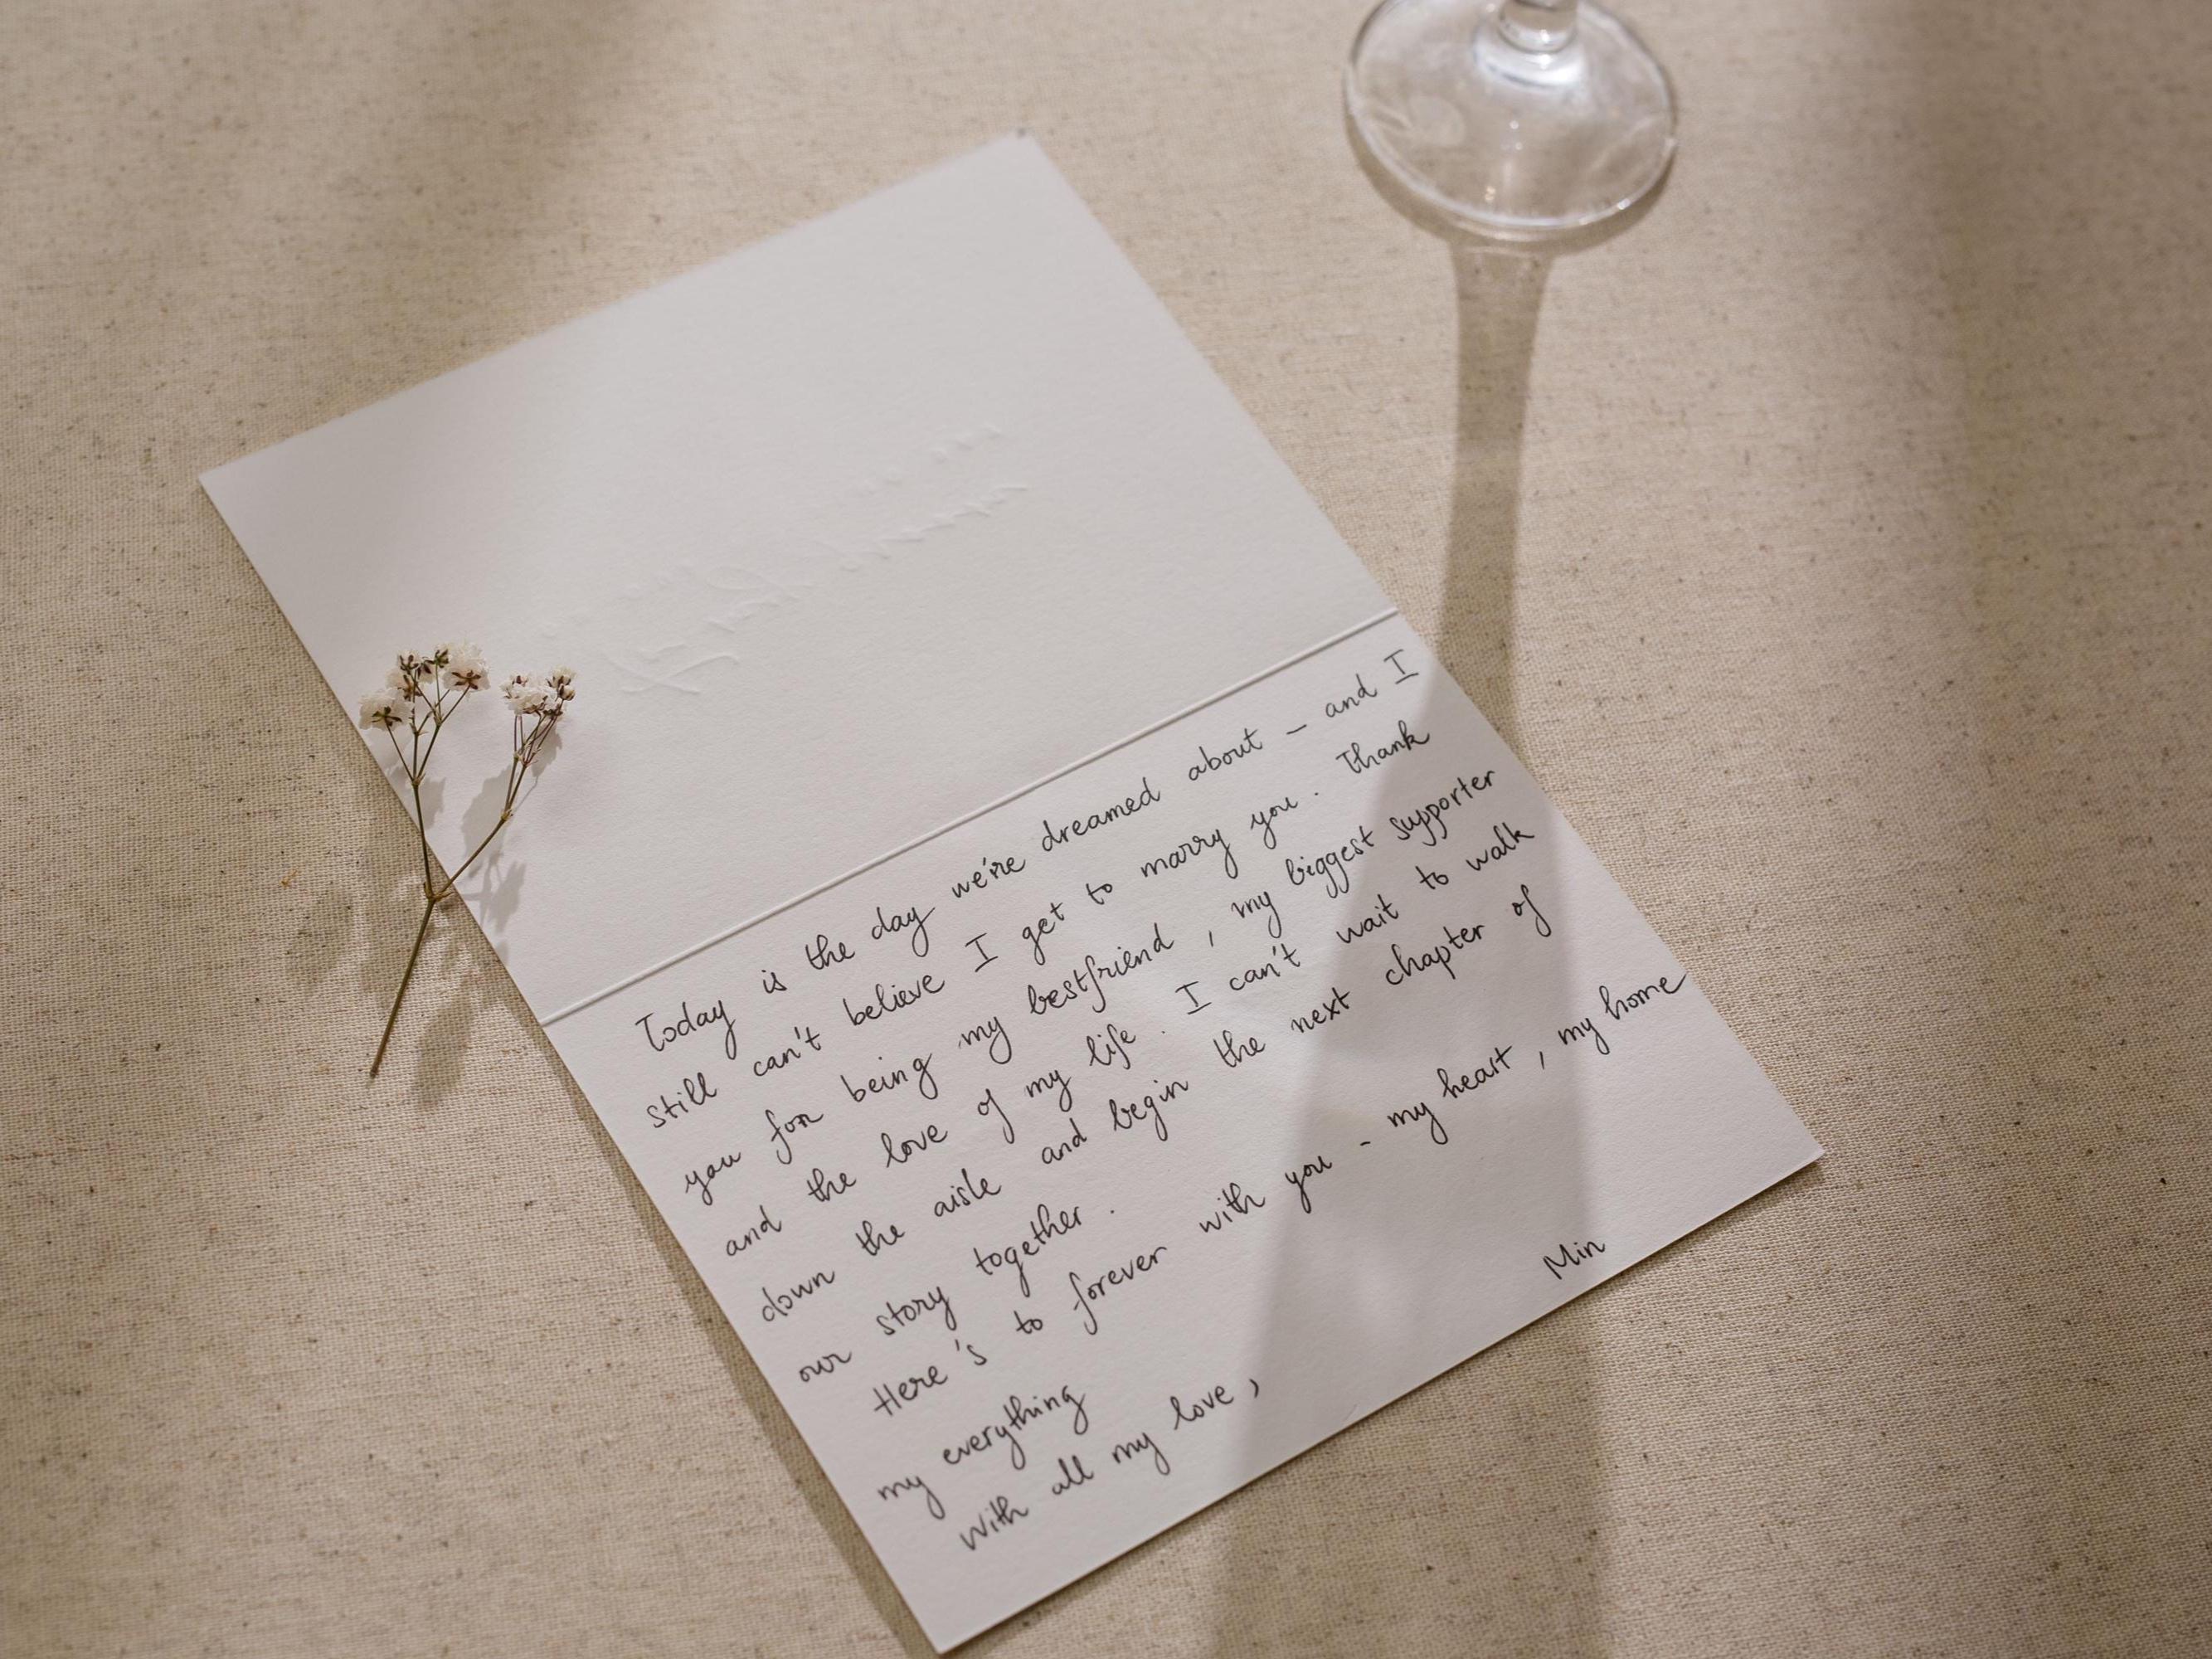 Today is the day we're dreamed about – and I
still can't believe I get to marry you. Thank
you for being my bestfriend, my biggest supporter
and the love of my life. I can't wait to walk
down the aisle and begin the next chapter of
our story together.
Here's to forever with you - my heart, my home
my everything
With all my love,
Min